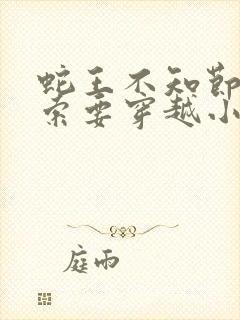 蛇王不知节
索要穿越小
庭雨